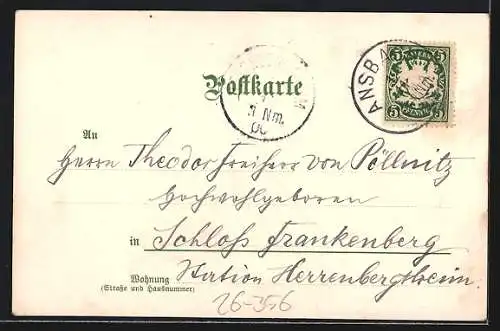 Postkarte
ANSBA
BAYERN
5 5
PFENNIG
5 5
5 Nm.
00
An
Herrn Theodor Freiherr von Pöllnitz
Hochwohlgeboren
in Schloß Frankenberg
Wohnung Station Herrenbergtheim.
(Straße und Hausnummer)
26-356